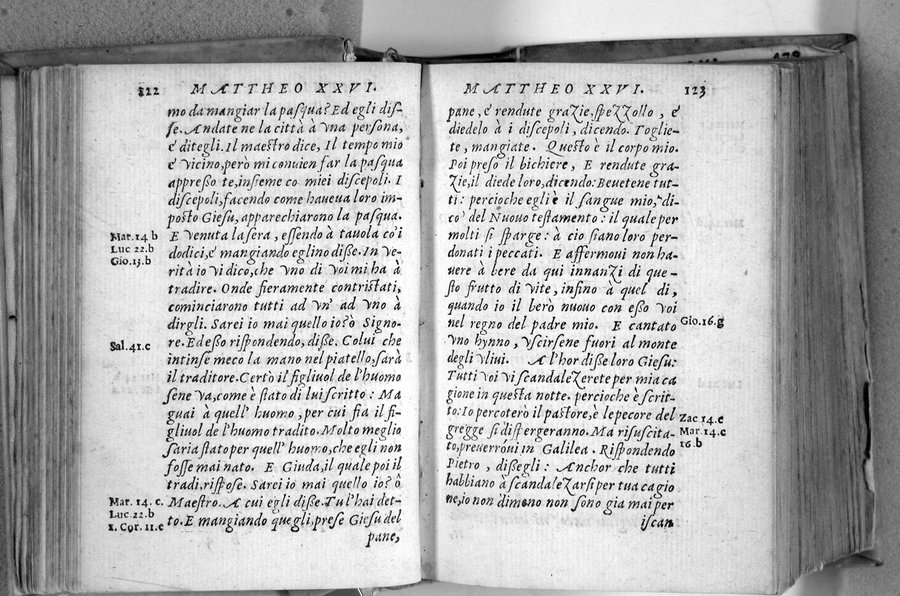 122 MATTHEO XXVI.
mo da mangiar la pasqua? Ed egli dis-
se. Andate ne la città à vna persona,
e ditegli. Il maestro dice, Il tempo mio
e vicino, però mi conuien far la pasqua
appresso te, insieme co miei discepoli. I
discepoli, facendo come haueua loro im-
posto Giesu, apparechiarono la pasqua.
Mar. 14 b E venuta la sera, essendo à tauola co i
Luc 22. b dodici, e mangiando eglino disse. In ve-
Gio. 13. b rità io vi dico, che vno di voi mi ha à
tradire. Onde fieramente contristati,
cominciarono tutti ad vn' ad vno à
dirgli. Sarei io mai quello io? ò Signo-
Sal. 41. c re. Ed esso rispondendo, disse. Colui che
intinse meco la mano nel piatello, sarà
il traditore. Certo il figliuol de l'huomo
sene va, come è stato di lui scritto: Ma
guai à quell' huomo, per cui fia il fi-
gliuol de l'huomo tradito. Molto meglio
saria stato per quell' huomo, che egli non
fosse mai nato. E Giuda, il quale poi il
tradi, rispose. Sarei io mai quello io? ô
Mar. 14. c. Maestro. A cui egli disse. Tu l'hai det-
Luc. 22. b to. E mangiando quegli, prese Giesu del
1. Cor. 11. e pane,
MATTHEO XXVI. 123
pane, e rendute grazie, spezzollo, e
diedelo à i discepoli, dicendo. Toglie-
te, mangiate. Questo è il corpo mio.
Poi preso il bichiere, E rendute gra-
zie, il diede loro, dicendo: Beuetene tut-
ti: percioche egli è il sangue mio, di-
co del Nuouo testamento: il quale per
molti si sparge: à cio siano loro per-
donati i peccati. E affermoui non ha-
uere à bere da qui innanzi di que-
sto frutto di vite, infino à quel di,
quando io il berò nuouo con esso voi
nel regno del padre mio. E cantato Gio. 16. g
vno hynno, vscirsene fuori al monte
degli vliui. A l'hor disse loro Giesu:
Tutti voi vi scandalezerete per mia ca
gione in questa notte. percioche è scrit-
to: Io percoterò il pastore, è le pecore del Zac 14. e
gregge si dispergeranno. Ma risuscita- Mar. 14. c
to, preuerróui in Galilea. Rispondendo 16. b
Pietro, dissegli: Anchor che tutti
habbiano à scandalezarsi per tua cagio
ne, io non dimeno non sono gia mai per
iscan